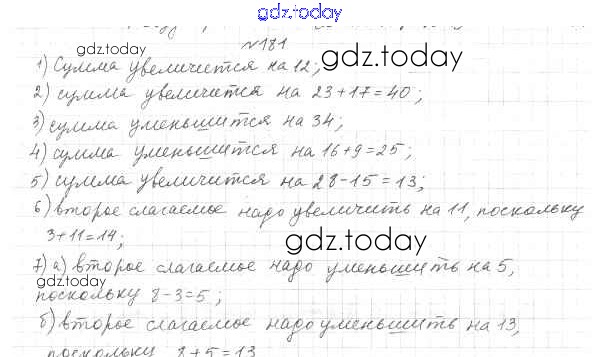 gdz.today
gdz.today
№181
gdz.today
1) Сумма увеличится на 12;
2) сумма увеличится на 23+17=40;
3) сумма уменьшится на 34;
4) сумма уменьшится на 16+9=25;
gdz.today
5) сумма увеличится на 28-15=13;
6) второе слагаемое надо увеличить на 11, поскольку
3+11=14;
gdz.today
7) а) второе слагаемое надо уменьшить на 5,
gdz.today
поскольку 8-3=5;
б) второе слагаемое надо уменьшить на 13,
поскольку 8+5=13